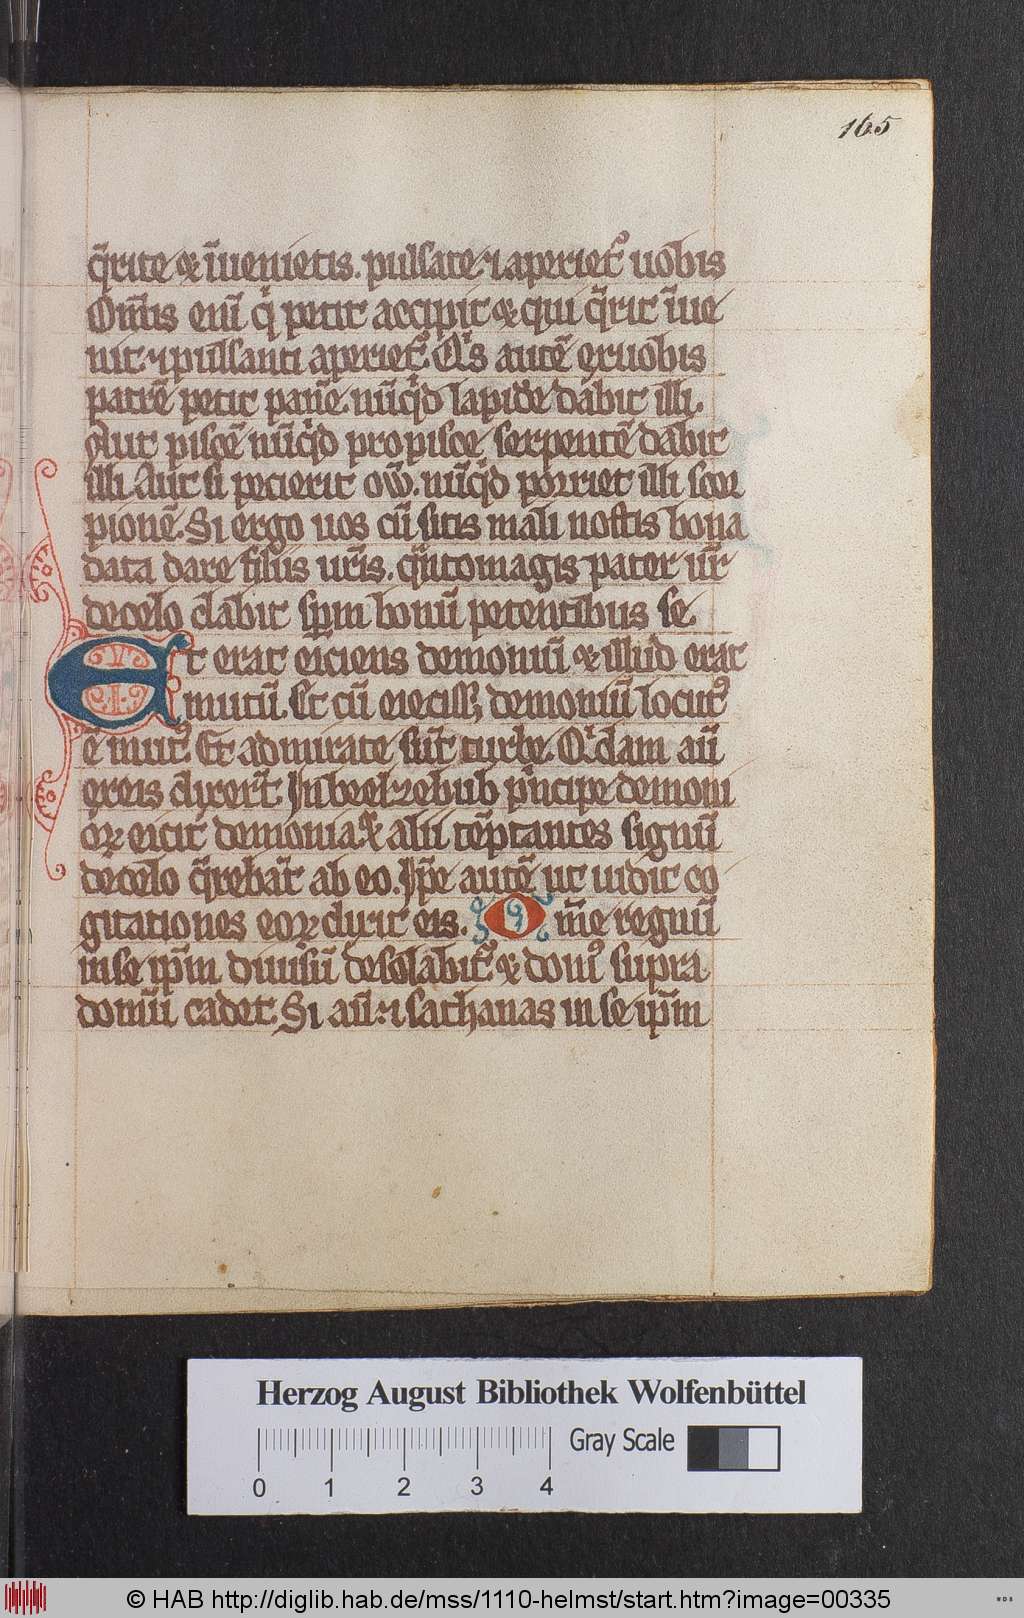 165
q̄rite ⁊ īuenietis. pulsate ⁊ aperiet᷑ uobis
Om̄is enī qⁱ petit accipit ⁊ qui q̄rit īue
nit ⁊ pulsanti aperiet᷑. Qⁱs autē ex uobis
patrē petit panē. nūcqⁱd lapidē dabit illi.
Aut piscē nūcqⁱd pro pisce serpentē dabit
illi. Aut si pecierit ouū. nūcqⁱd porriet illi scor
pionē. Si ergo uos cū sitis mali nostis bona
data dare filiis ur̄is. qͣntomagis pater ur̄
decelo dabit sp̄m bonū petentibus se.
Et erat eiciens demoniū ⁊ illud erat
mutū. Et cū eieciss; demoniū locut᷒
ē mut᷒. Et admirate sūt turbe. Qⁱdam aū
ex eis dixert̄. In beelzebub pⁱncipe demoni
oꝝ eicit demonia. ⁊ alii tēptantes signū
decelo q̄rebāt ab eo. Ip̄e autē ut uidit co
gitationes eoꝝ dixit eis. Om̄e regnū
in se ip̄m diuisū desolabit᷑ ⁊ dom᷒ supra
domū cadet. Si aū ⁊ sathanas in se ip̄m
Herzog August Bibliothek Wolfenbüttel
Gray Scale
0 1 2 3 4
© HAB http://diglib.hab.de/mss/1110-helmst/start.htm?image=00335